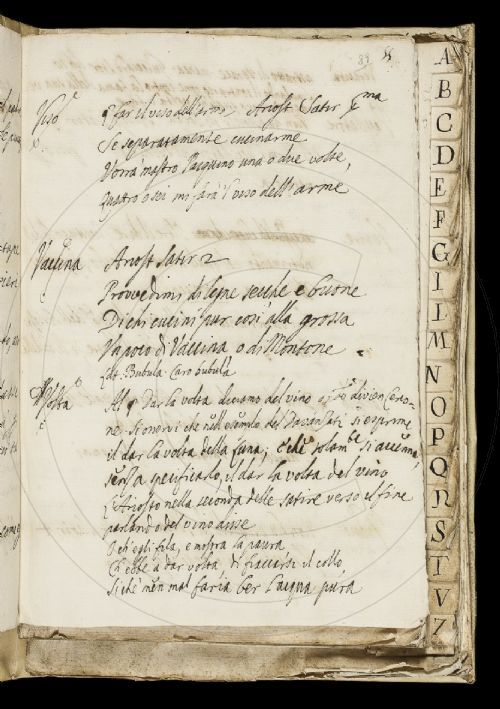 89
Viso
far il viso dell'armi, Ariost Satir ma
Se separatamente cucinarme
Vorrà mastro Pasquino una o due volte,
Quattro o sei mi farà 'l viso dell'arme,
Vaccina Ariost Satir 2
Provvedimi di legne secche e buone
Di chi cucini pur così alla grossa
Un poco di Vaccina o di Montone
Lat. Bubula Caro bubula
Volta Dar la volta deciamo del vino divien Cerco-
ne. Si osservi che nell'esemplo del Davanzati si esprime
il dar la volta della luna; e che si accenna,
senza specificarlo, il dar la volta del vino
L'Ariosto nella seconda delle satire verso il fine
parlando del vino disse
O ch'egli fila, e mostra la paura
Ch'ebbe a dar volta, di fiaccarsi il collo,
Sì che men mal saria ber l'acqua pura
A
B
C
D
E
F
G
I
L
M
N
O
P
Q
R
S
T
V
Z